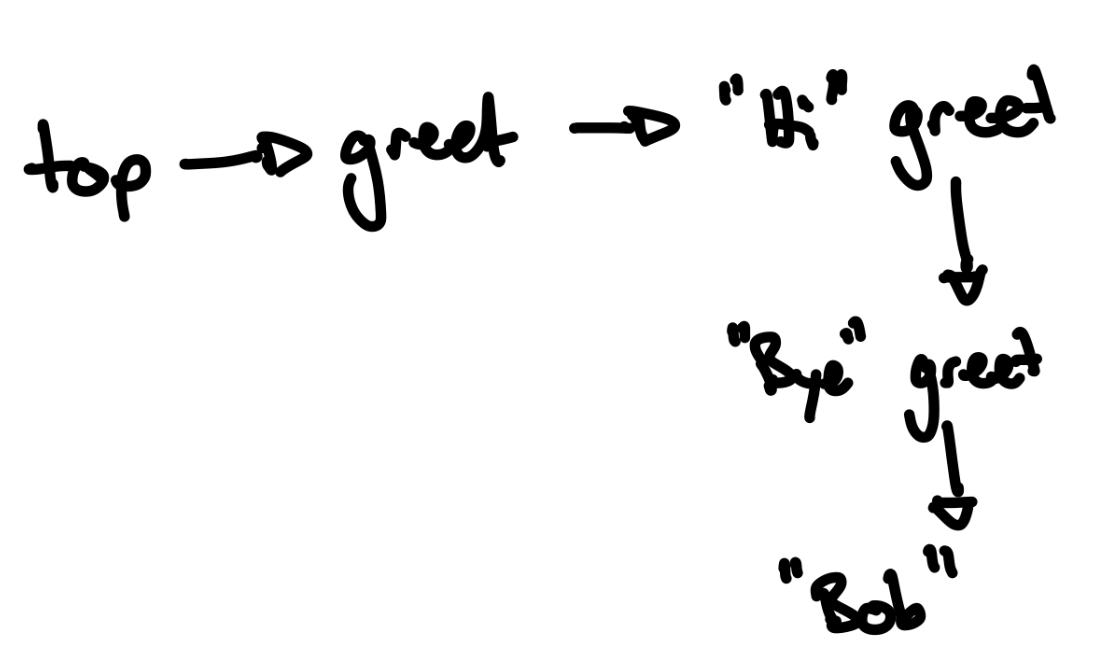 top greet "Hi" greet
"Bye" greet
"Bob"